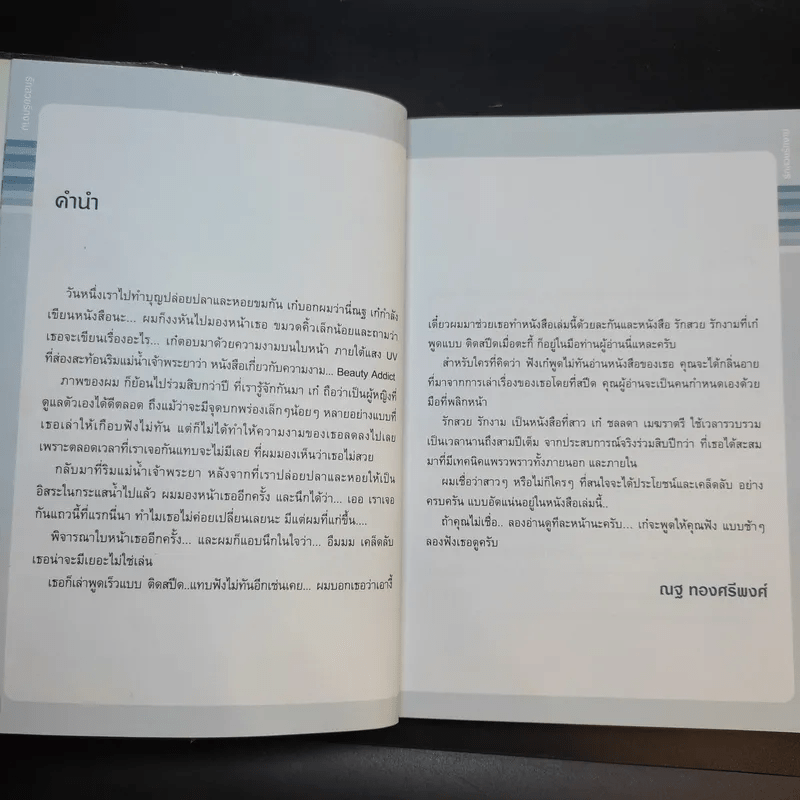 รักสวยรักงาม
คำนำ
วันหนึ่งเราไปทำบุญปล่อยปลาและหอยขมกัน เก๋บอกผมว่านี่ณฐ เก๋กำลัง
เขียนหนังสือนะ... ผมก็งงหันไปมองหน้าเธอ ขมวดคิ้วเล็กน้อยและถามว่า
เธอจะเขียนเรื่องอะไร... เก๋ตอบมาด้วยความงามบนใบหน้า ภายใต้แสง UV
ที่ส่องสะท้อนริมแม่น้ำเจ้าพระยาว่า หนังสือเกี่ยวกับความงาม... Beauty Addict
ภาพของผม ก็ย้อนไปร่วมสิบกว่าปี ที่เรารู้จักกันมา เก๋ ถือว่าเป็นผู้หญิงที่
ดูแลตัวเองได้ดีตลอด ถึงแม้ว่าจะมีจุดบกพร่องเล็กๆน้อยๆ หลายอย่างแบบที่
เธอเล่าให้เกือบฟังไม่ทัน แต่ก็ไม่ได้ทำให้ความงามของเธอลดลงไปเลย
เพราะตลอดเวลาที่เราเจอกันแทบจะไม่มีเลย ที่ผมมองเห็นว่าเธอไม่สวย
กลับมาที่ริมแม่น้ำเจ้าพระยา หลังจากที่เราปล่อยปลาและหอยให้เป็น
อิสระในกระแสน้ำไปแล้ว ผมมองหน้าเธออีกครั้ง และนึกได้ว่า... เออ เราเจอ
กันแถวนี้ที่แรกนี่นา ทำไมเธอไม่ค่อยเปลี่ยนเลยนะ มีแต่ผมที่แก่ขึ้น....
พิจารณาใบหน้าเธออีกครั้ง... และผมก็แอบนึกในใจว่า... อืมมม เคล็ดลับ
เธอน่าจะมีเยอะไม่ใช่เล่น
เธอก็เล่าพูดเร็วแบบ ติดสปีด..แทบฟังไม่ทันอีกเช่นเคย... ผมบอกเธอว่าเอางี้
เดี๋ยวผมมาช่วยเธอทำหนังสือเล่มนี้ด้วยละกันและหนังสือ รักสวย รักงามที่เก๋
พูดแบบ ติดสปีดเมื่อตะกี้ ก็อยู่ในมือท่านผู้อ่านนี่แหละครับ
สำหรับใครที่คิดว่า ฟังเก๋พูดไม่ทันอ่านหนังสือของเธอ คุณจะได้กลิ่นอาย
ที่มาจากการเล่าเรื่องของเธอโดยที่สปีด คุณผู้อ่านจะเป็นคนกำหนดเองด้วย
มือที่พลิกหน้า
รักสวย รักงาม เป็นหนังสือที่สาว เก๋ ชลลดา เมฆราตรี ใช้เวลารวบรวม
เป็นเวลานานถึงสามปีเต็ม จากประสบการณ์จริงร่วมสิบปีกว่า ที่เธอได้สะสม
มาที่มีเทคนิคแพรวพราวทั้งภายนอก และภายใน
ผมเชื่อว่าสาวๆ หรือไม่ก็ใครๆ ที่สนใจจะได้ประโยชน์และเคล็ดลับ อย่าง
ครบครัน แบบอัดแน่นอยู่ในหนังสือเล่มนี้..
ถ้าคุณไม่เชื่อ.. ลองอ่านดูทีละหน้านะครับ... เก๋จะพูดให้คุณฟัง แบบช้าๆ
ลองฟังเธอดูครับ
ณฐ ทองศรีพงศ์